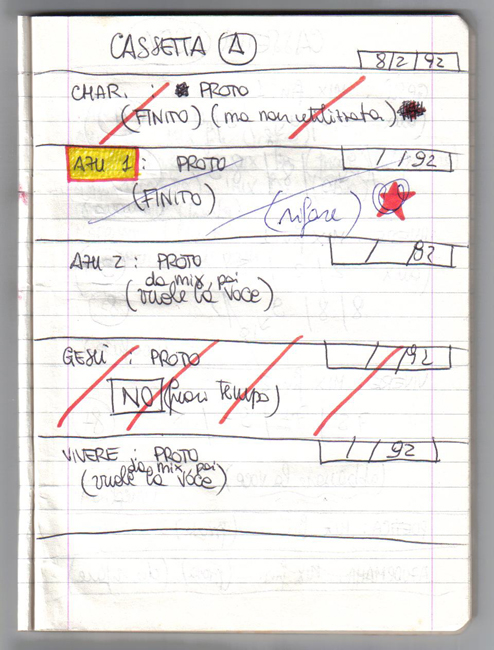 CASSETTA A
8/2/92
CHAR. : PROTO
(FINITO) (ma non utilizzata)
A74 1 : PROTO
/ / 92
(FINITO)
(rifare)
A74 2 : PROTO
/ / 92
da mix, poi
(vuole la voce)
GESÙ : PROTO
/ / 92
NO (fuori Tempo)
VIVERE : PROTO
/ / 92
da mix, poi
(vuole la voce)